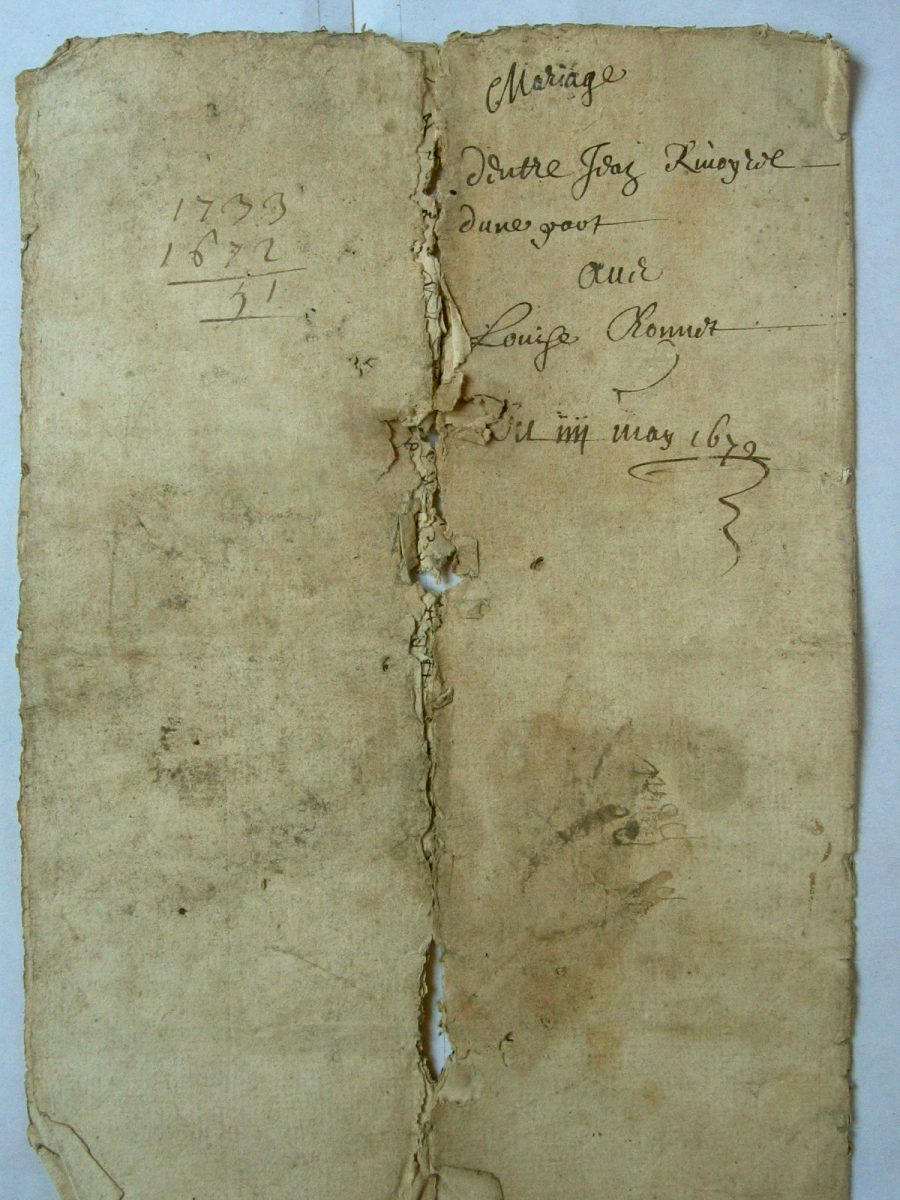 1733
1672
51
Mariage
dentre Jean
dune part
Avec
Louise Ronnet
Du iiij may 1672